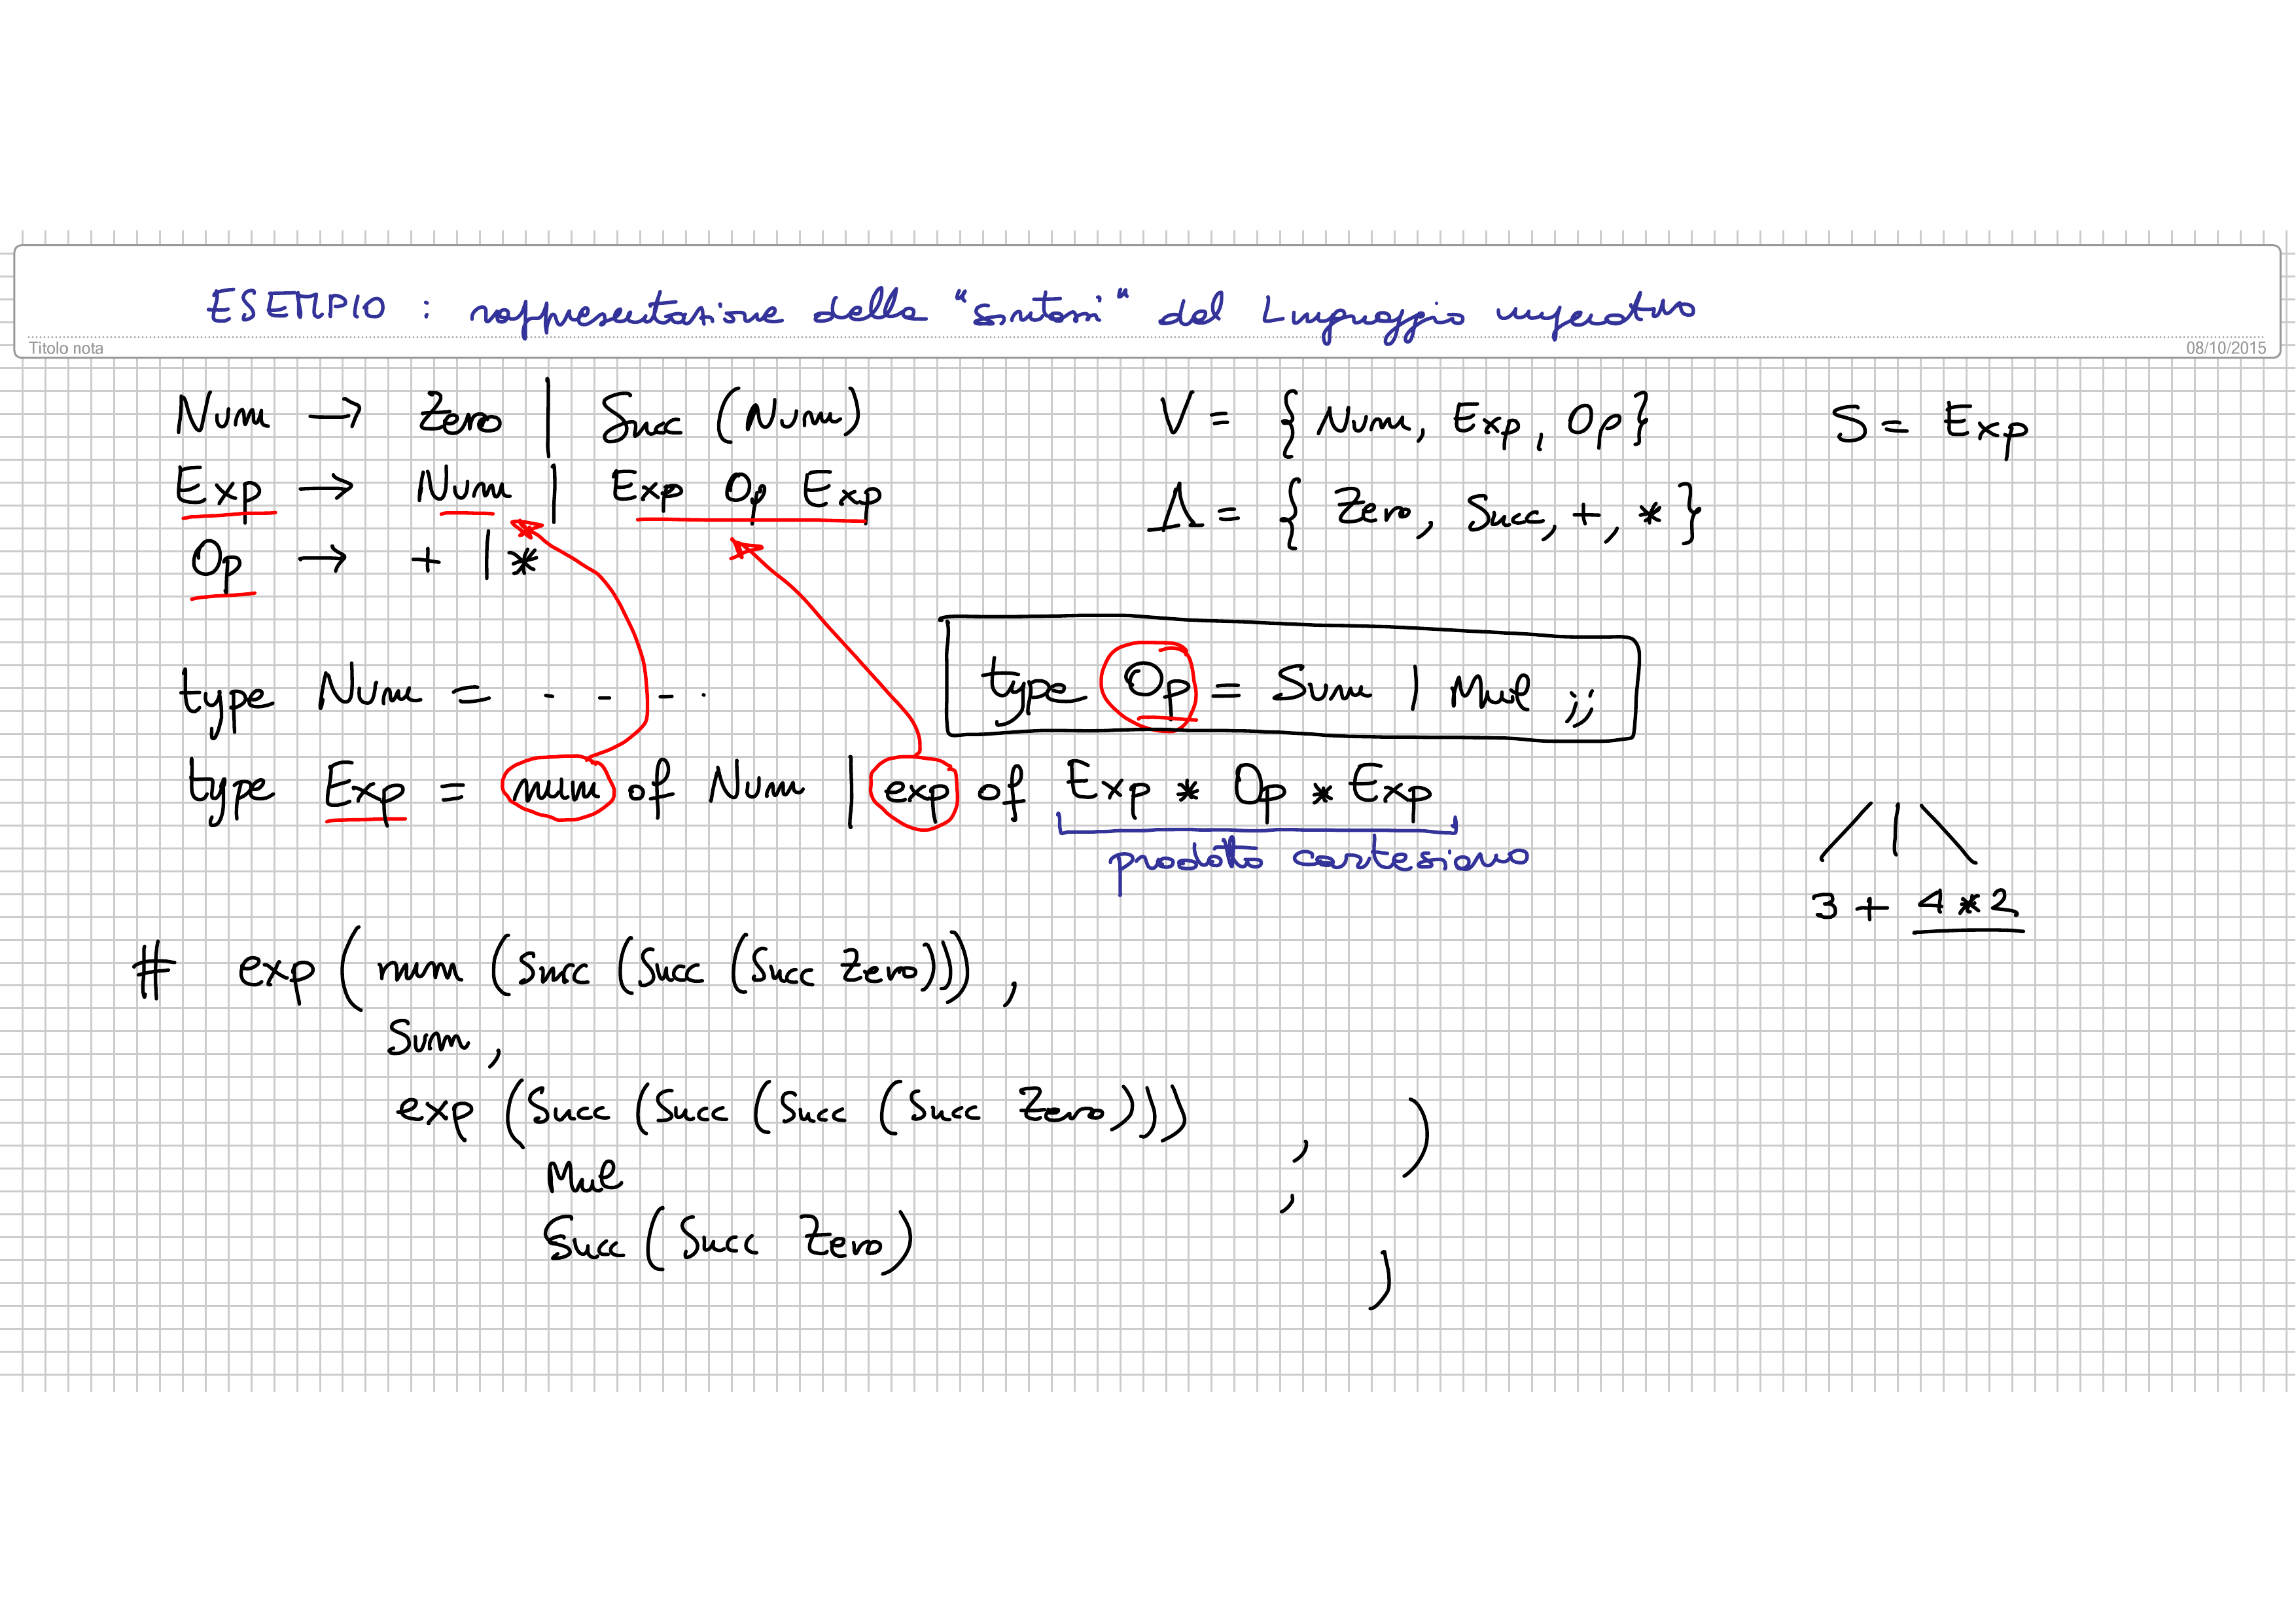 ESEMPIO : rappresentazione della "sintassi" del Linguaggio imperativo
Titolo nota
08/10/2015
Num → Zero | Succ (Num)
V = { Num, Exp, Op }
S = Exp
Exp → Num | Exp Op Exp
Λ = { Zero, Succ, +, * }
Op → + | *
type Num = - - - .
type Op = Sum | Mul ;;
type Exp = num of Num | exp of Exp * Op * Exp
prodotto cartesiano
3 + 4 * 2
# exp ( num (Succ (Succ (Succ Zero))) ,
Sum ,
exp (Succ (Succ (Succ (Succ Zero))) , )
Mul ,
Succ (Succ Zero) )